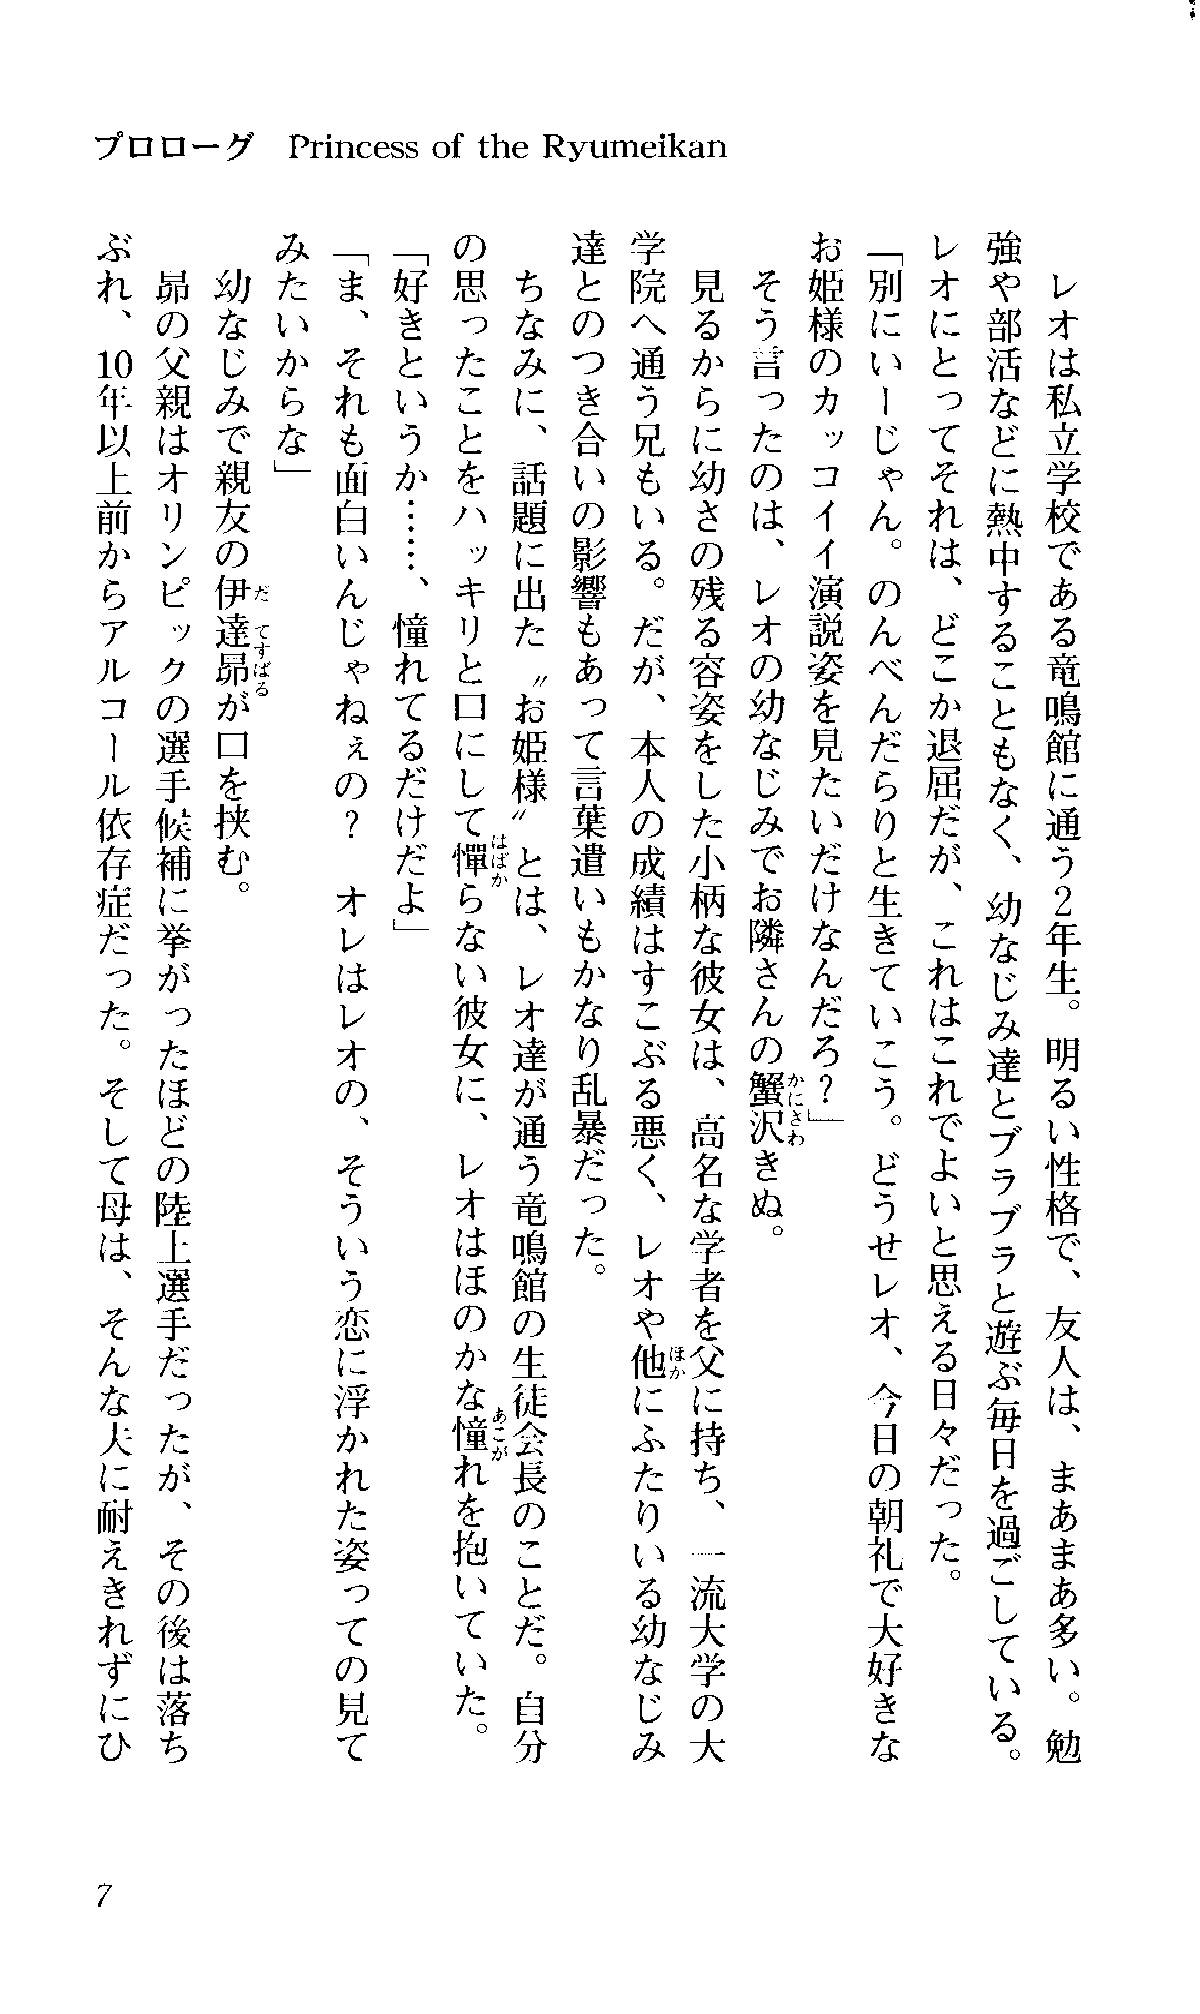 プロローグ　Princess of the Ryumeikan
　レオは私立学校である竜鳴館に通う2年生。明るい性格で、友人は、まあまあ多い。勉
強や部活などに熱中することもなく、幼なじみ達とブラブラと遊ぶ毎日を過ごしている。
レオにとってそれは、どこか退屈だが、これはこれでよいと思える日々だった。
「別にいーじゃん。のんべんだらりと生きていこう。どうせレオ、今日の朝礼で大好きな
お姫様のカッコイイ演説姿を見たいだけなんだろ？」
　そう言ったのは、レオの幼なじみでお隣さんの蟹沢きぬ。
　見るからに幼さの残る容姿をした小柄な彼女は、高名な学者を父に持ち、一流大学の大
学院へ通う兄もいる。だが、本人の成績はすこぶる悪く、レオや他にふたりいる幼なじみ
達とのつき合いの影響もあって言葉遣いもかなり乱暴だった。
　ちなみに、話題に出た〝お姫様〟とは、レオ達が通う竜鳴館の生徒会長のことだ。自分
の思ったことをハッキリと口にして憚らない彼女に、レオはほのかな憧れを抱いていた。
「好きというか……、憧れてるだけだよ」
「ま、それも面白いんじゃねぇの？　オレはレオの、そういう恋に浮かれた姿っての見て
みたいからな」
　幼なじみで親友の伊達昴が口を挟む。
　昴の父親はオリンピックの選手候補に挙がったほどの陸上選手だったが、その後は落ち
ぶれ、10年以上前からアルコール依存症だった。そして母は、そんな夫に耐えきれずにひ
かにさわ
ほか
はばか
あこが
だてすばる
7